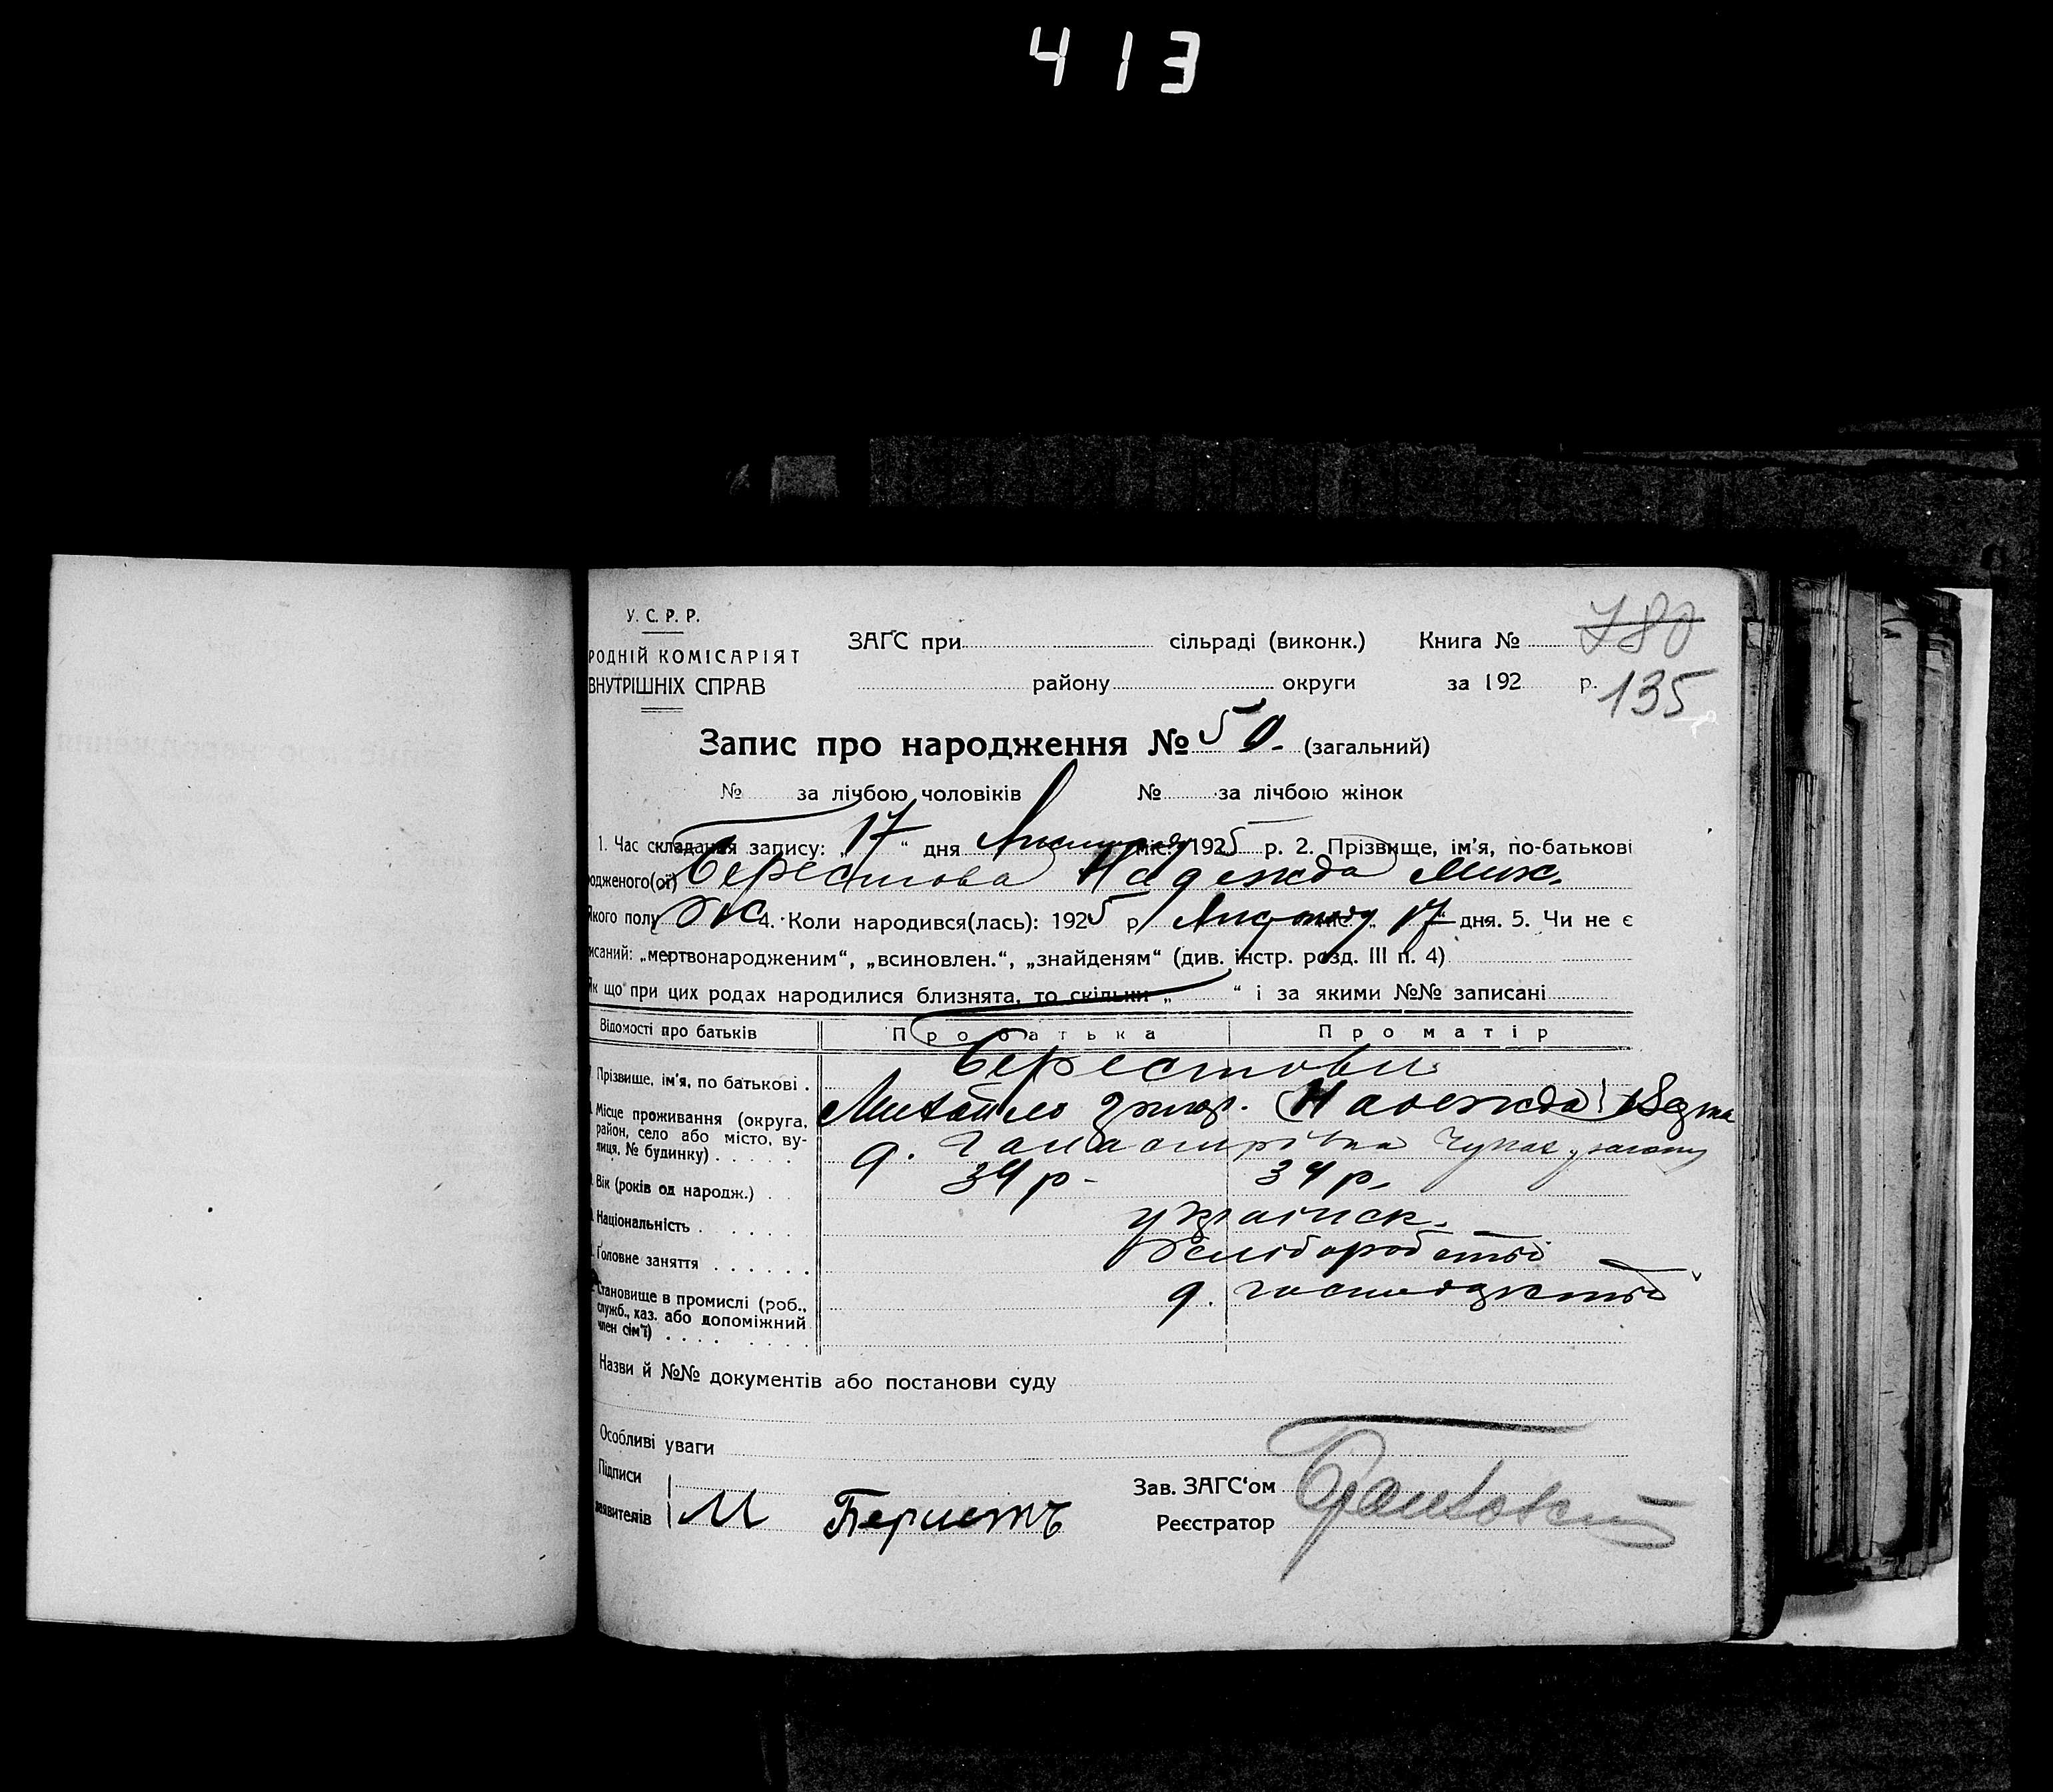 413
У. С. Р. Р.
РОДНІЙ КОМІСАРІЯТ
ВНУТРІШНІХ СПРАВ
ЗАҐС при сільраді (виконк.) Книга № 780
району округи за 192 р. 135
Запис про народження № 50. (загальний)
№ за лічбою чоловіків № за лічбою жінок
1. Час складання запису: „17“ дня Листопада міс. 1925 р. 2. Прізвище, ім'я, по-батькові
родженого(ої) Берестова Надежда Мих.
Якого полу ж 4. Коли народився(лась): 1925 р. Листопада міс. „17“ дня. 5. Чи не є
исаний: „мертвонародженим“, „всиновлен.“, „знайденям“ (див. інстр. розд. III п. 4)
Як що при цих родах народилися близнята, то скільки „ “ і за якими №№ записані
Відомості про батьків Про батька Про матір
Прізвище, ім'я, по батькові . Берестови
Михайло григор. Надежда
Місце проживання (округа, район, село або місто, вулиця, № будинку) . . . . . района
Вік (років од народж.) . . 34 р - 34 р.
Національність . . . . . україиск.
Головне заняття . . . . . . хліборобство
Становище в промислі (роб., служб., хаз. або допоміжний член сім'ї) . . . . . . . .
Назви й №№ документів або постанови суду
Особливі уваги
Підписи
заявителів М Беристъ
Зав. ЗАГС'ом
Реєстратор